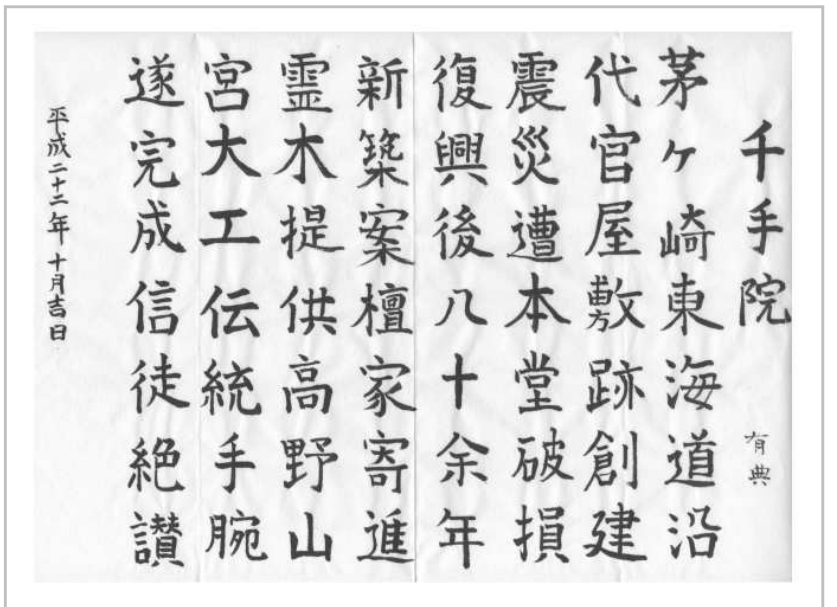 千手院
有典
茅ヶ崎東海道沿
代官屋敷跡創建
震災遭本堂破損
復興後八十余年
新築案檀家寄進
霊木提供高野山
宮大工伝統手腕
遂完成信徒絶讃
平成二十二年十月吉日